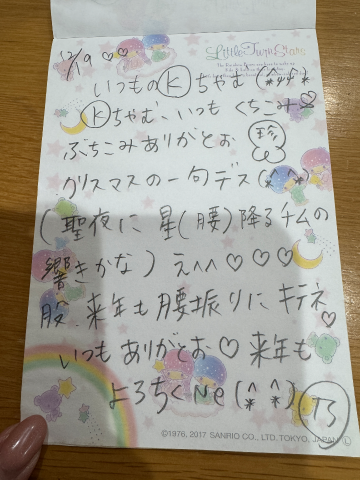 12/19 ♡♡
Little Twin Stars
いつものⓀちゃむ(^*ᵞ^*)
Ⓚちゃむ、いつも くちこみ♡
ぶちこみありがとお 珍
クリスマスの一句デス(^*^*)
(聖夜に 星(腰)降るチムの
響きかな) え^^♡♡♡
股。来年も腰振りに キテネ♡
いつもありがとお♡ 来年も
よろちくNe(^*^*) TS
©1976, 2017 SANRIO CO., LTD. TOKYO, JAPAN Ⓛ